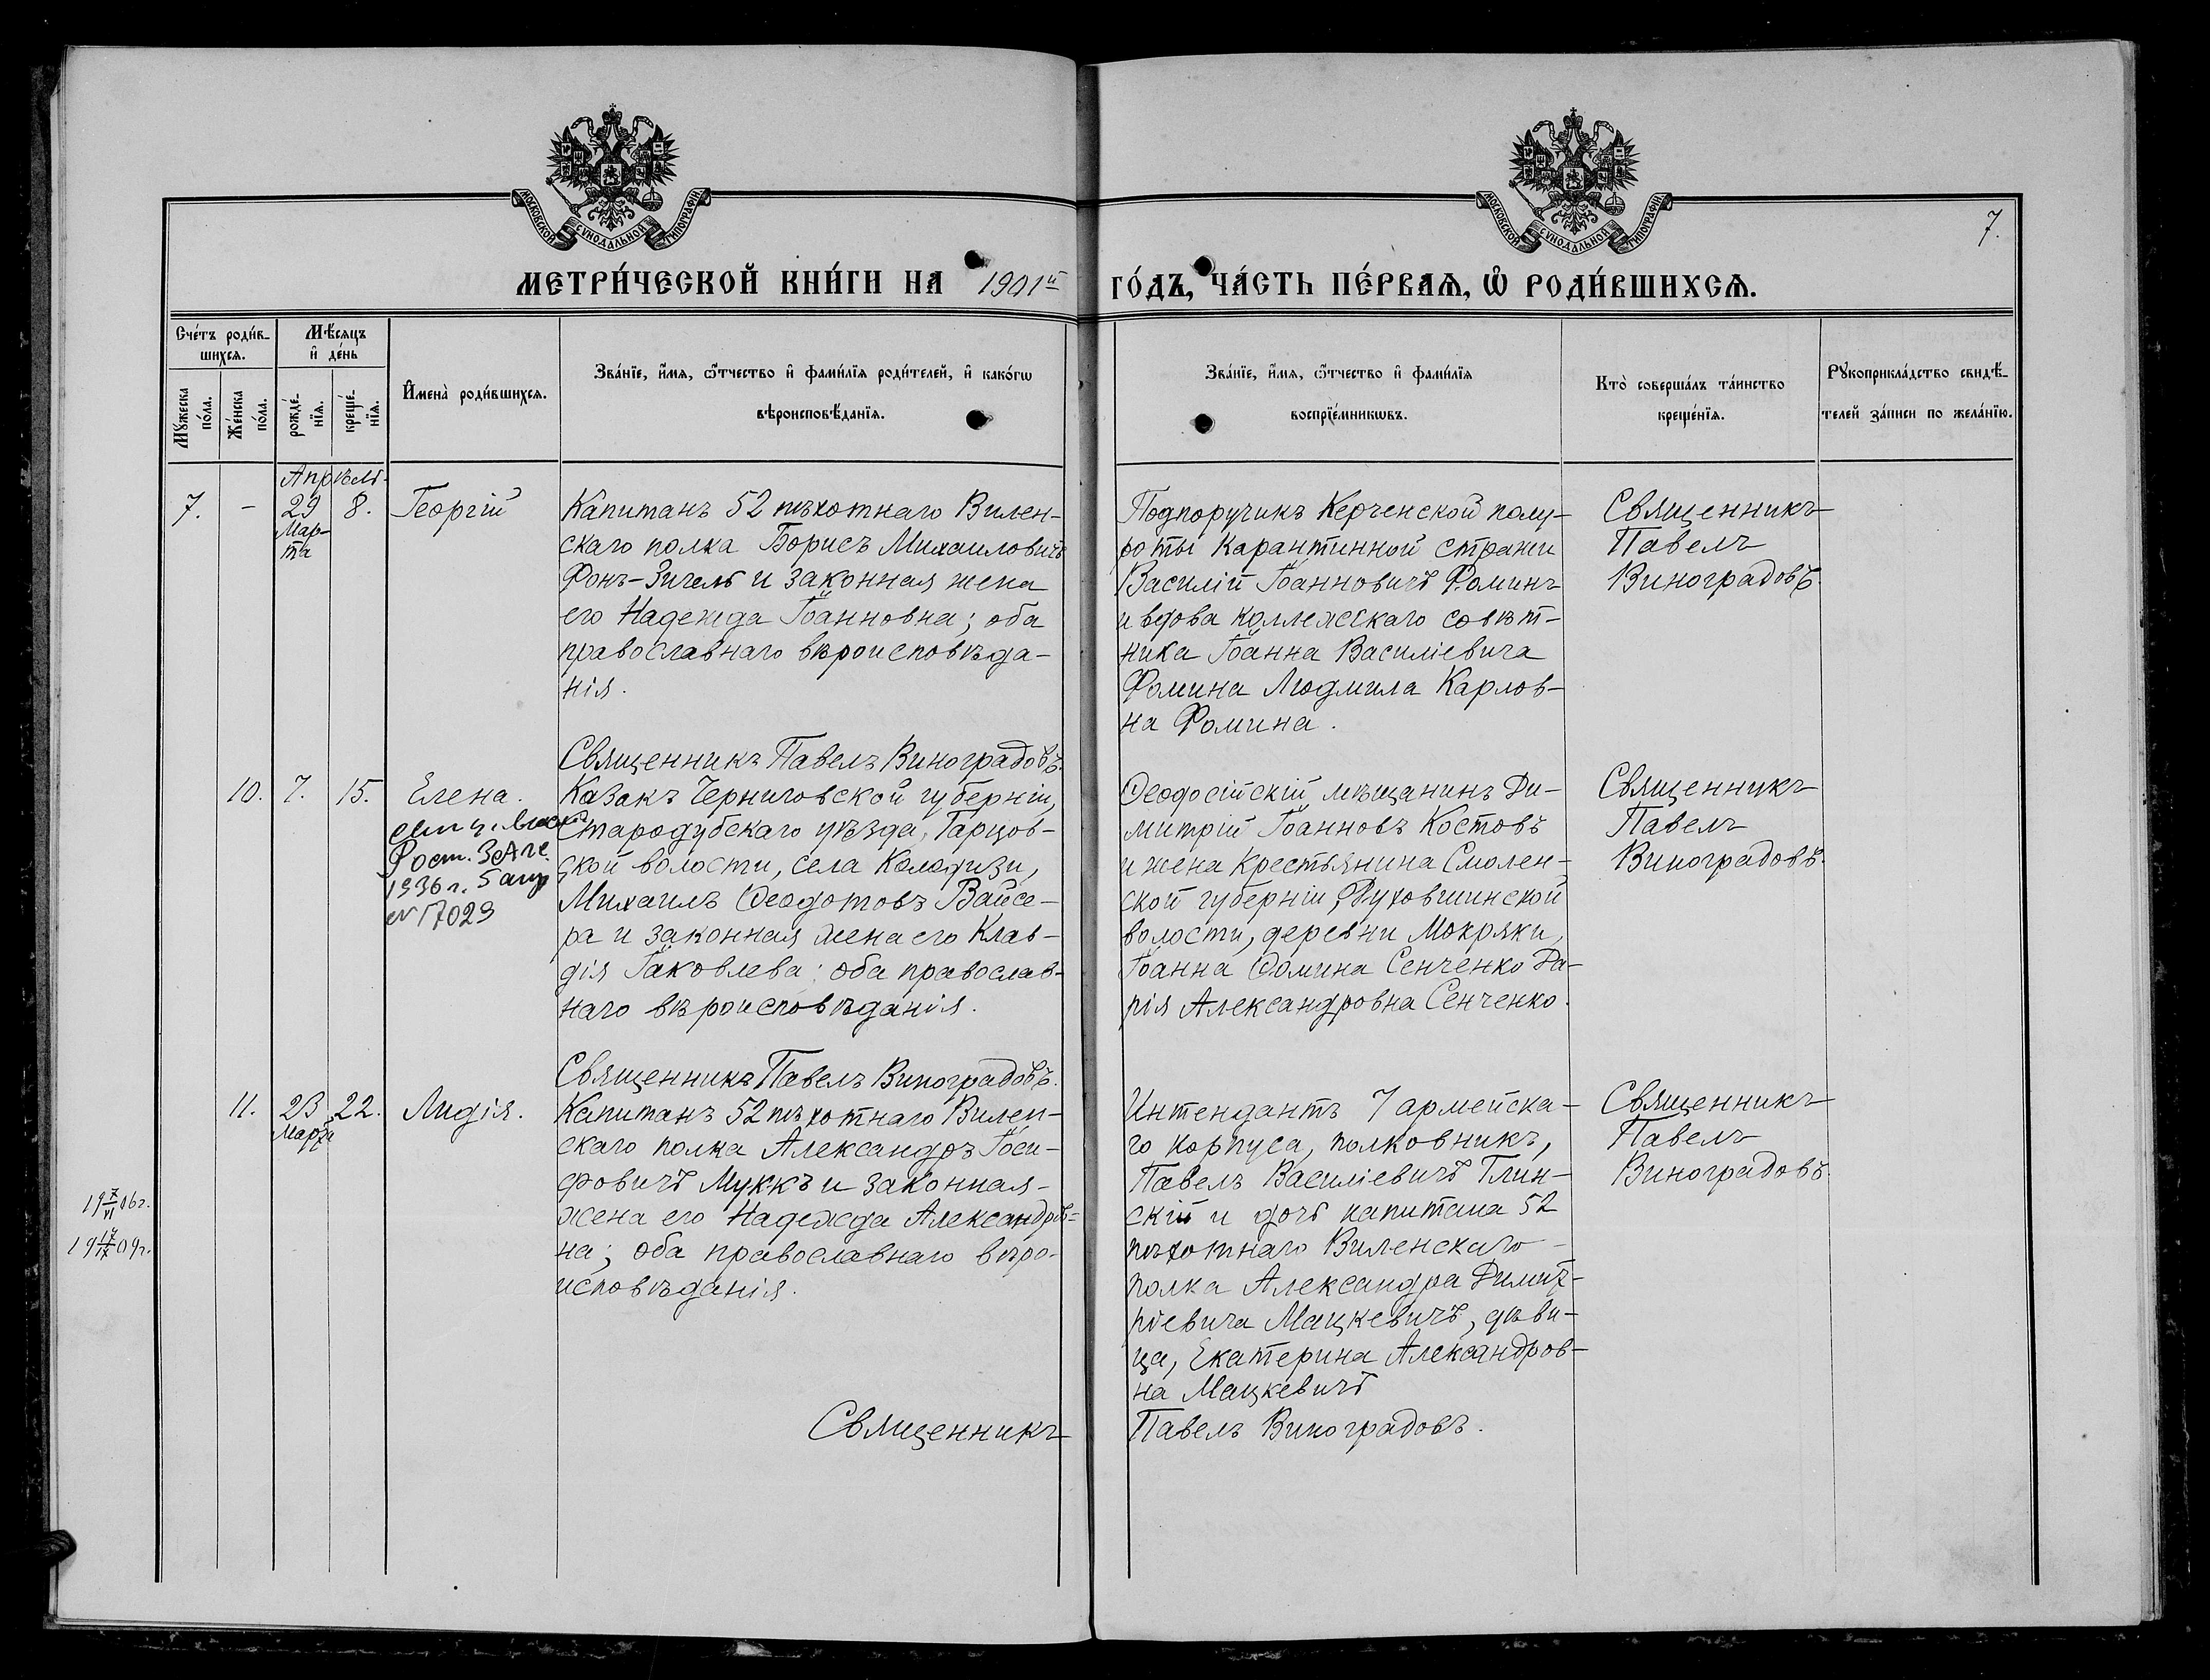 МОСКОВСКОЙ СУНОДАЛЬНОЙ ТИПОГРАФІИ
МОСКОВСКОЙ СУНОДАЛЬНОЙ ТИПОГРАФІИ
7.
МЕТРИ́ЧЕСКОЙ КНИ́ГИ НА 1901й ГО́ДЪ, ЧА́СТЬ ПЕ́РВАѦ, Ѡ҆ РОДИ́ВШИХСѦ.
Сче́тъ роди́в-
шихсѧ.
Мꙋ́жеска по́ла.
Же́нска по́ла.
Мѣ́сѧцъ
и҆ де́нь
рожде́-
нїѧ.
креще́-
нїѧ.
И҆мена̀ роди́вшихсѧ.
Зва́нїе, и҆́мѧ, ѻ҆́тчество и҆ фами́лїѧ роди́телей, и҆ како́гѡ
вѣроисповѣ́данїѧ.
Зва́нїе, и҆́мѧ, ѻ҆́тчество и҆ фами́лїѧ
воспрїе́мникѡвъ.
Кто̀ соверша́лъ та́инство
креще́нїѧ.
Рꙋкоприкла́дство свидѣ́-
телей за́писи по жела́нїю.
Апрѣль.
7. - 29 8. Георгій
Мар-
та
Капитанъ 52 пѣхотнаго Вилен-
скаго полка Борисъ Михаиловичъ
Фонъ-Зигель и законная жена
его Надежда Іоанновна; оба
православнаго вѣроисповѣда-
нія.
Подпоручикъ Керченской полу-
роты Карантинной стражи
Василій Іоанновичъ Фоминъ
и вдова коллежскаго совѣт-
ника Іоанна Василіевича
Фомина Людмила Карлов-
на Фомина.
Священникъ
Павелъ
Виноградовъ.
Священникъ Павелъ Виноградовъ.
10. 7. 15. Елена.
Рост. ЗАГС
1936 г. 5 апр
№ 17029
Казакъ Черниговской губерніи,
Стародубскаго уѣзда, Гарцов-
ской волости, села Колодизи,
Михаилъ Ѳеодотовъ Вайсе-
ра и законная жена его Клав-
дія Іаковлева: оба православ-
наго вѣроисповѣданія.
Ѳеодосійскій мѣщанинъ Ди-
митрій Іоанновъ Костовъ
и жена крестьянина Смолен-
ской губерніи, Духовшинской
волости, деревни Мокряки,
Іоанна Ѳомина Сенченко Да-
рія Александровна Сенченко.
Священникъ
Павелъ
Виноградовъ.
Священникъ Павелъ Виноградовъ.
11. 23 22. Лидія.
Марта
Капитанъ 52 пѣхотнаго Вилен-
скаго полка Александръ Іоси-
фовичъ Муккъ и законная
жена его Надежда Александров-
на; оба православнаго вѣро-
исповѣданія.
Интендантъ 7 армейска-
го корпуса, полковникъ,
Павелъ Василіевичъ Глин-
скій и дочь капитана 52
пѣхотнаго Виленскаго
полка Александра Димит-
ріевича Мацкевичъ, дѣви-
ца, Екатерина Александров-
на Мацкевичъ
Священникъ
Павелъ
Виноградовъ.
Священникъ Павелъ Виноградовъ.